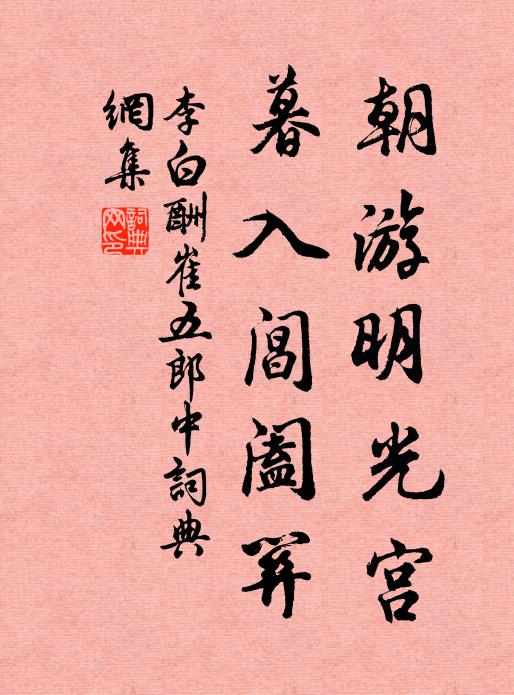 朝游明光宫
暮入閶闔关
李白酬崔五郎中詞典
網集
詞典网印